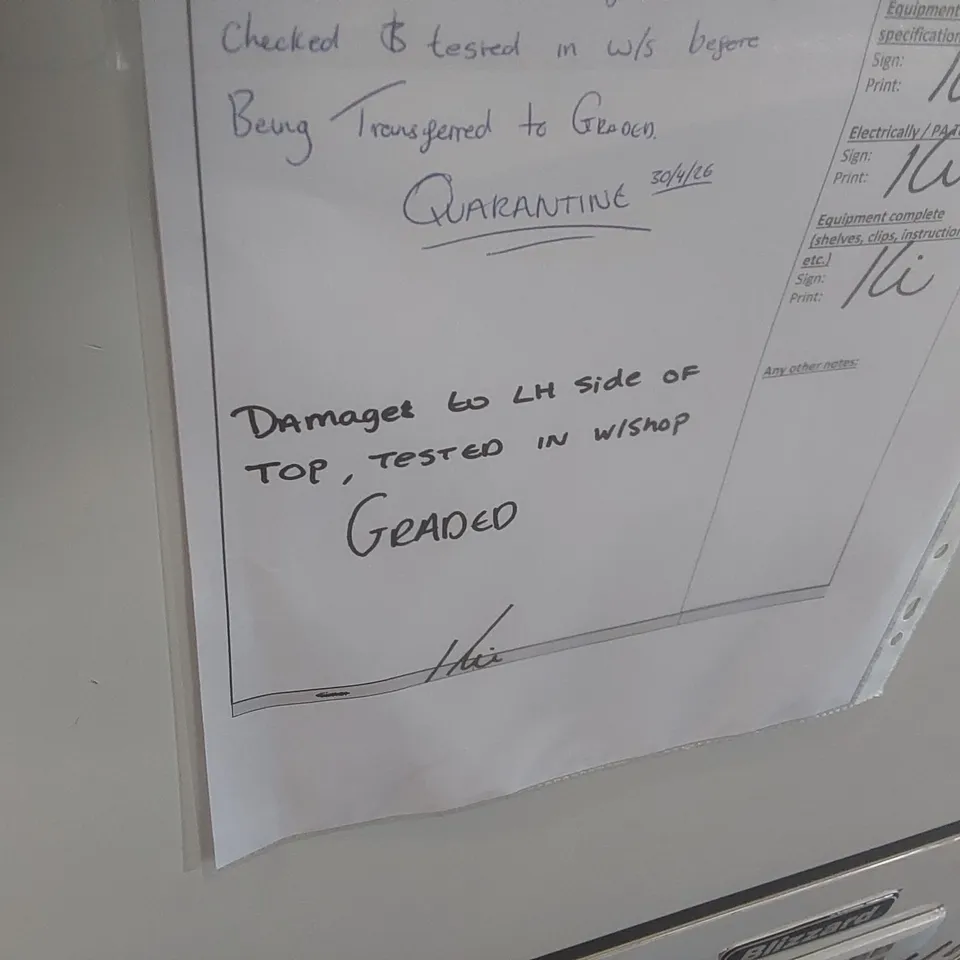 Checked & tested in w/s before
Being Transferred to GRADED.
QUARANTINE 30/4/26
DAMAGES to LH Side OF
TOP, TESTED IN W/SHOP
GRADED
Equipment
specification
Sign:
Print:
Electrically / PAT
Sign:
Print:
Equipment complete
(shelves, clips, instruction
etc.)
Sign:
Print:
Any other notes:
Blizzard